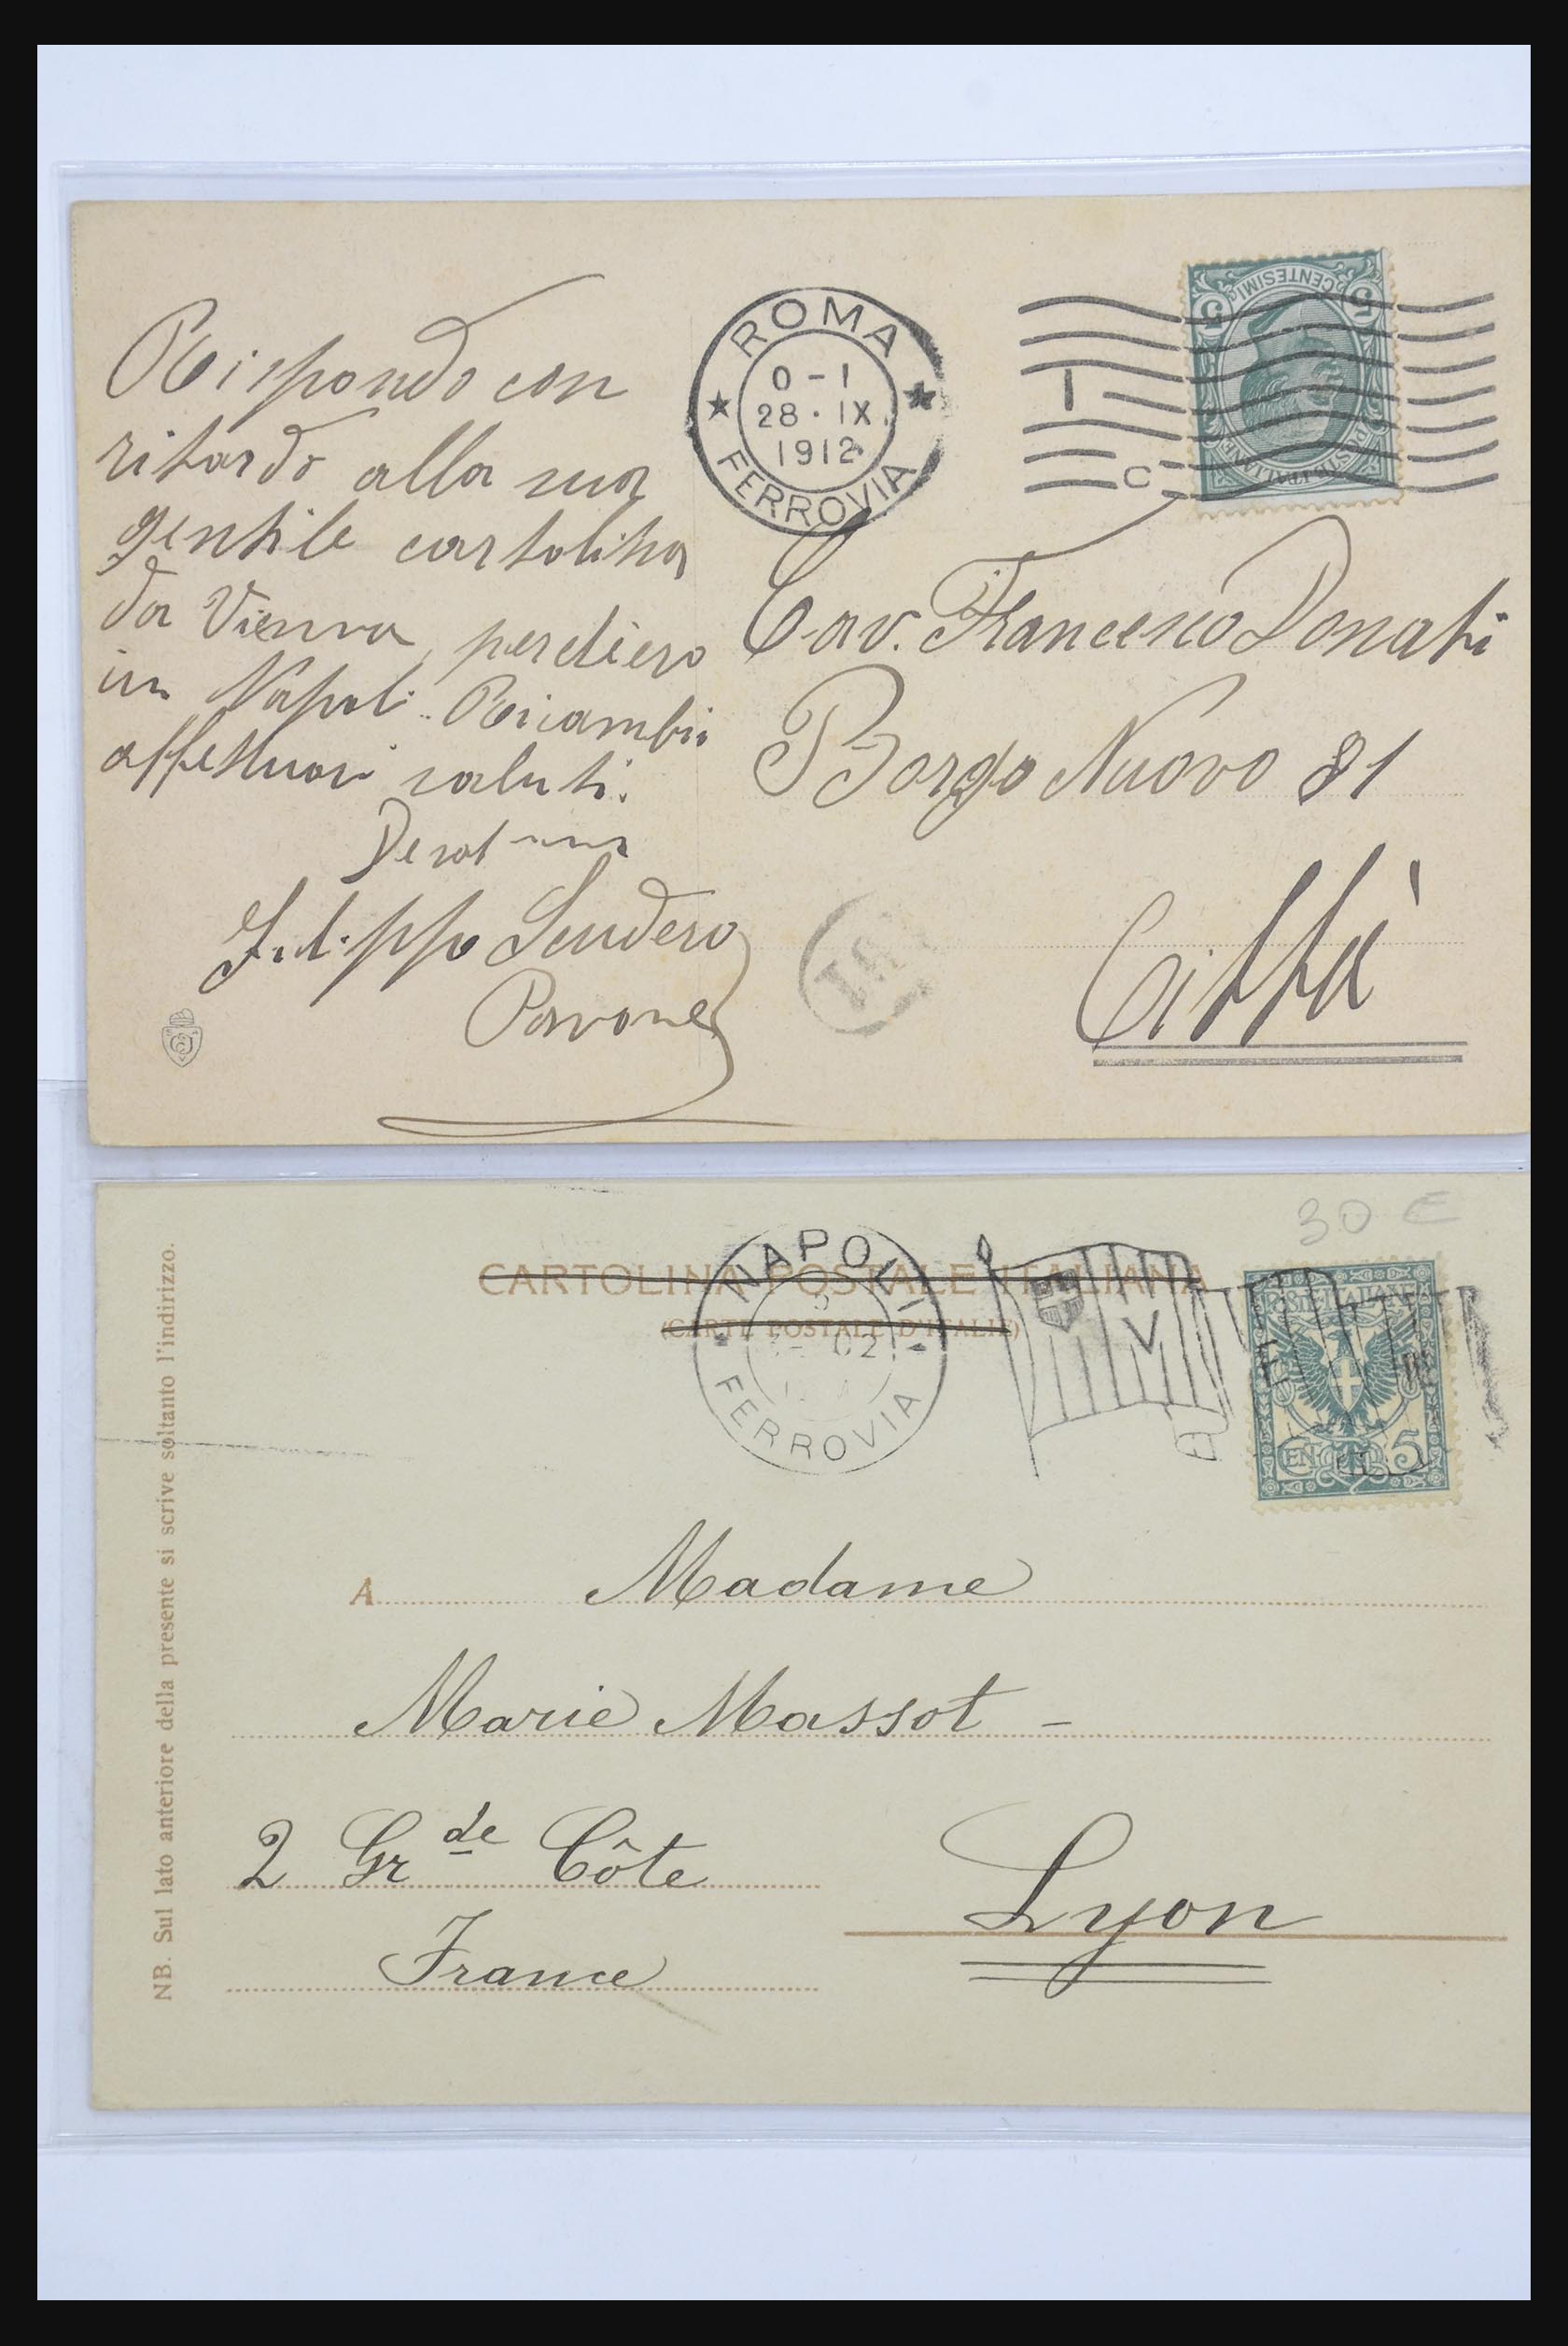 Rispondo con
ritardo alla sua
gentile cartolina
da Vienna, perch'ero
in Napoli. Ricambio
affettuosi saluti.
Filippo Scudero
Pavone
ROMA
0-1
28·IX.
1912
FERROVIA
I
C
CENTESIMI
5 5
POSTE ITALIANE
Cav. Francesco Donati
Borgo Nuovo 81
Città
30 €
CARTOLINA POSTALE ITALIANA
(CARTE POSTALE D'ITALIE)
NAPOLI
02
FERROVIA
V E III
POSTE ITALIANE
CENT. 5
A Madame
Marie Massot -
2 Gr de Côte
Lyon
France
NB. Sul lato anteriore della presente si scrive soltanto l'indirizzo.